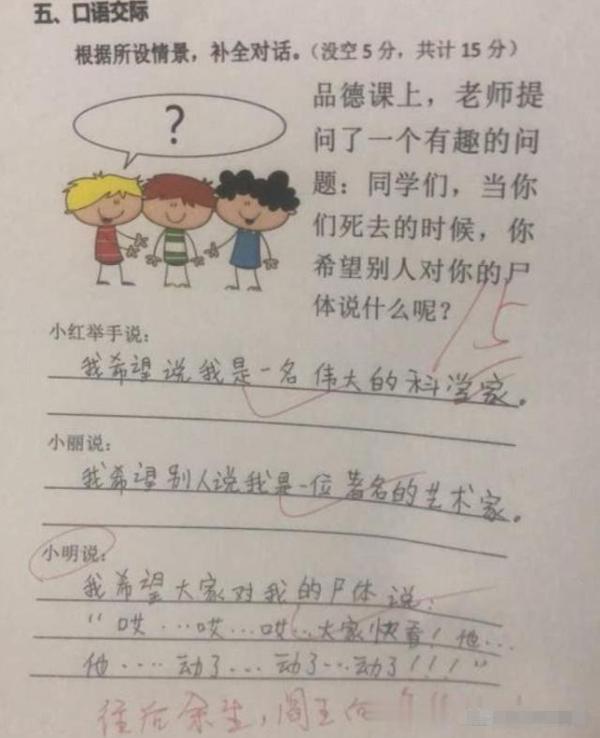 五、口语交际
根据所设情景，补全对话。（没空 5 分，共计 15 分）
?
品德课上，老师提
问了一个有趣的问
题：同学们，当你
们死去的时候，你
希望别人对你的尸
体说什么呢？
15
小红举手说：
我希望说我是一名伟大的科学家。
小丽说：
我希望别人说我是一位著名的艺术家。
小明说：
我希望大家对我的尸体说：
“哎…哎…哎…大家快看！他…
他……动了…动了…动了！！！”
往后余生，阎王